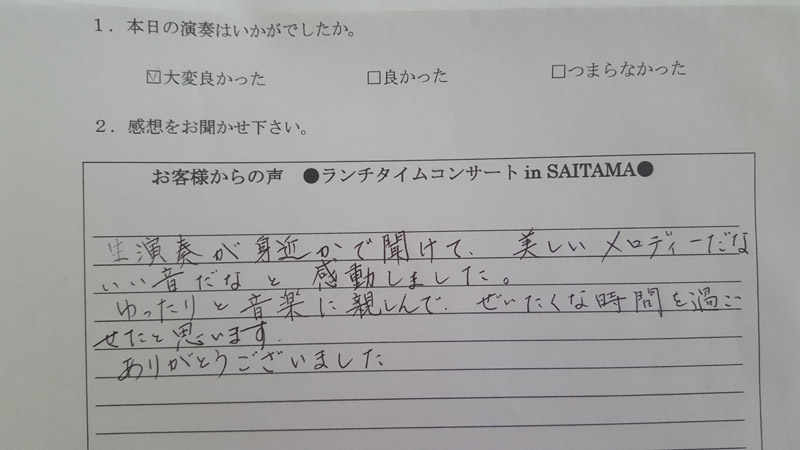 1．本日の演奏はいかがでしたか。
☑大変良かった　□良かった　□つまらなかった
2．感想をお聞かせ下さい。
お客様からの声　●ランチタイムコンサート in SAITAMA●
生演奏が身近かで聞けて、美しいメロディーだな
いい音だなと感動しました。
ゆったりと音楽に親しんで、ぜいたくな時間を過ご
せたと思います。
ありがとうございました